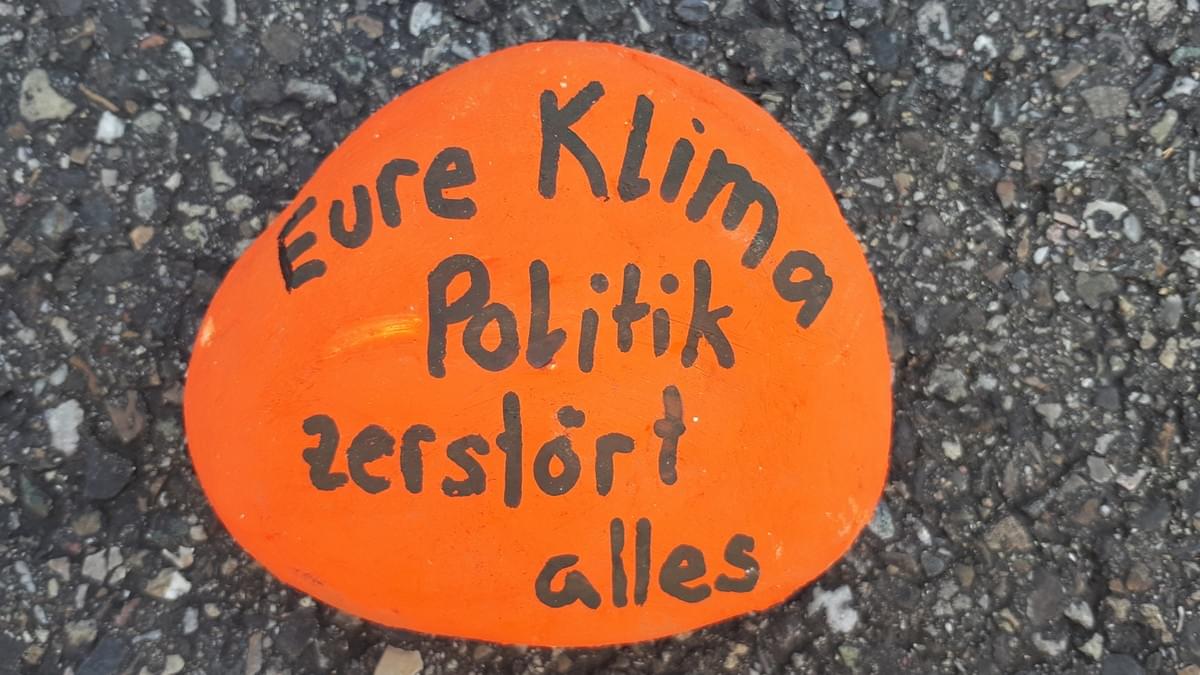 Eure Klima
Politik
zerstört
alles